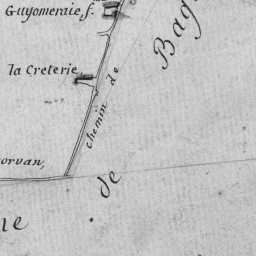 Guyomeraie, f.
la Creterie,
chemin de
Bag
orvan,
de
ne